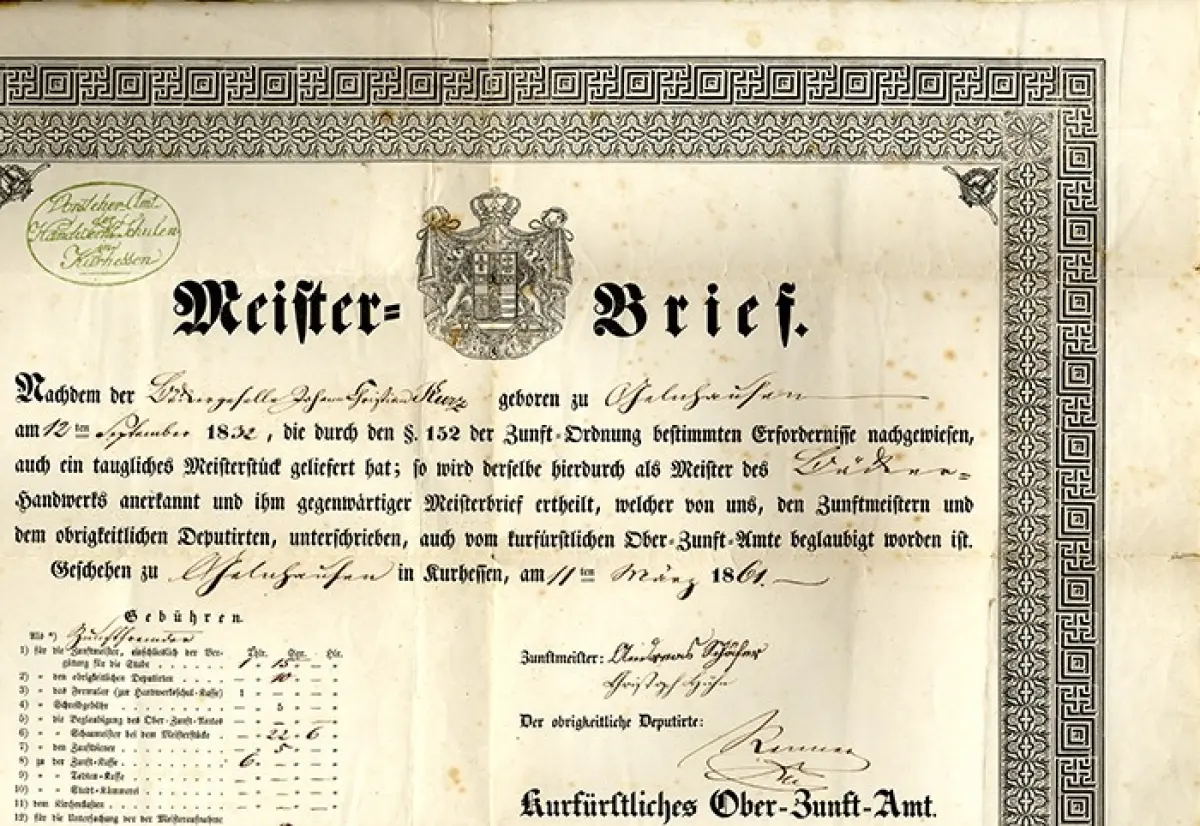 Vorsteher-Amt
der
Handwerks-Schulen
in
Kurhessen
Meister-Brief.
Nachdem der Bäckergeselle Johann Christian Kurz geboren zu Gelnhausen
am 12ten September 1832, die durch den §. 152 der Zunft-Ordnung bestimmten Erfordernisse nachgewiesen,
auch ein taugliches Meisterstück geliefert hat; so wird derselbe hierdurch als Meister des Bäcker-
Handwerks anerkannt und ihm gegenwärtiger Meisterbrief ertheilt, welcher von uns, den Zunftmeistern und
dem obrigkeitlichen Deputirten, unterschrieben, auch vom kurfürstlichen Ober-Zunft-Amte beglaubigt worden ist.
Geschehen zu Gelnhausen in Kurhessen, am 11ten März 1861.
Gebühren.
Als *) Zunftfremder
Thlr. Sgr. Hlr.
1) für die Zunftmeister, einschließlich der Ver-
gütung für die Stube 1 " 15 " - "
2) " den obrigkeitlichen Deputirten - " 10 " - "
3) " das Formular (zur Handwerkschul-Kasse) 1 " - " - "
4) " Schreibgebühr - " 5 " - "
5) " die Beglaubigung des Ober-Zunft-Amtes - " - " - "
6) " " Schaumeister bei dem Meisterstücke - " 22 " 6
7) " den Zunftdiener - " 5 " - "
8) zu der Zunft-Kasse 6 " - " - "
9) " " Todten-Kasse - " - " - "
10) " " Stadt-Kämmerei - " - " - "
11) dem Kirchenkasten - " - " - "
12) für die Untersuchung der der Meisteraufnahme
Zunftmeister: Andreas Schäfer
Christoph Huhn
Der obrigkeitliche Deputirte:
Kurfürstliches Ober-Zunft-Amt.